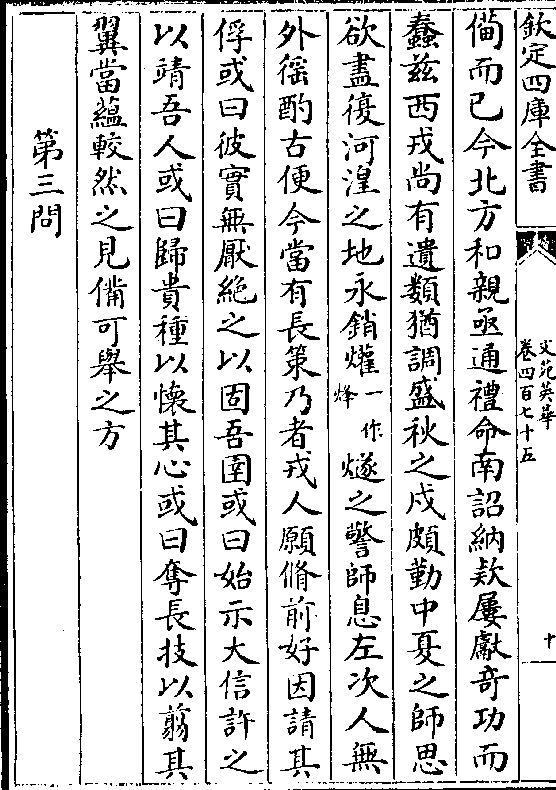 欽定四庫全書
文苑英華
卷四百七十五
十
備而已今北方和親亟通禮命南詔納款屢獻奇功而
蠢兹西戎尚有遺類猶調盛秋之戍頗勤中夏之師思
欲盡復河湟之地永銷爟一作烽燧之警師息左次人無
外徭酌古便今當有長策乃者戎人願脩前好因請其
俘或曰彼實無厭絶之以固吾圉或曰始示大信許之
以靖吾人或曰歸貴種以懷其心或曰奪長技以翦其
翼當藴較然之見備可舉之方
第三問